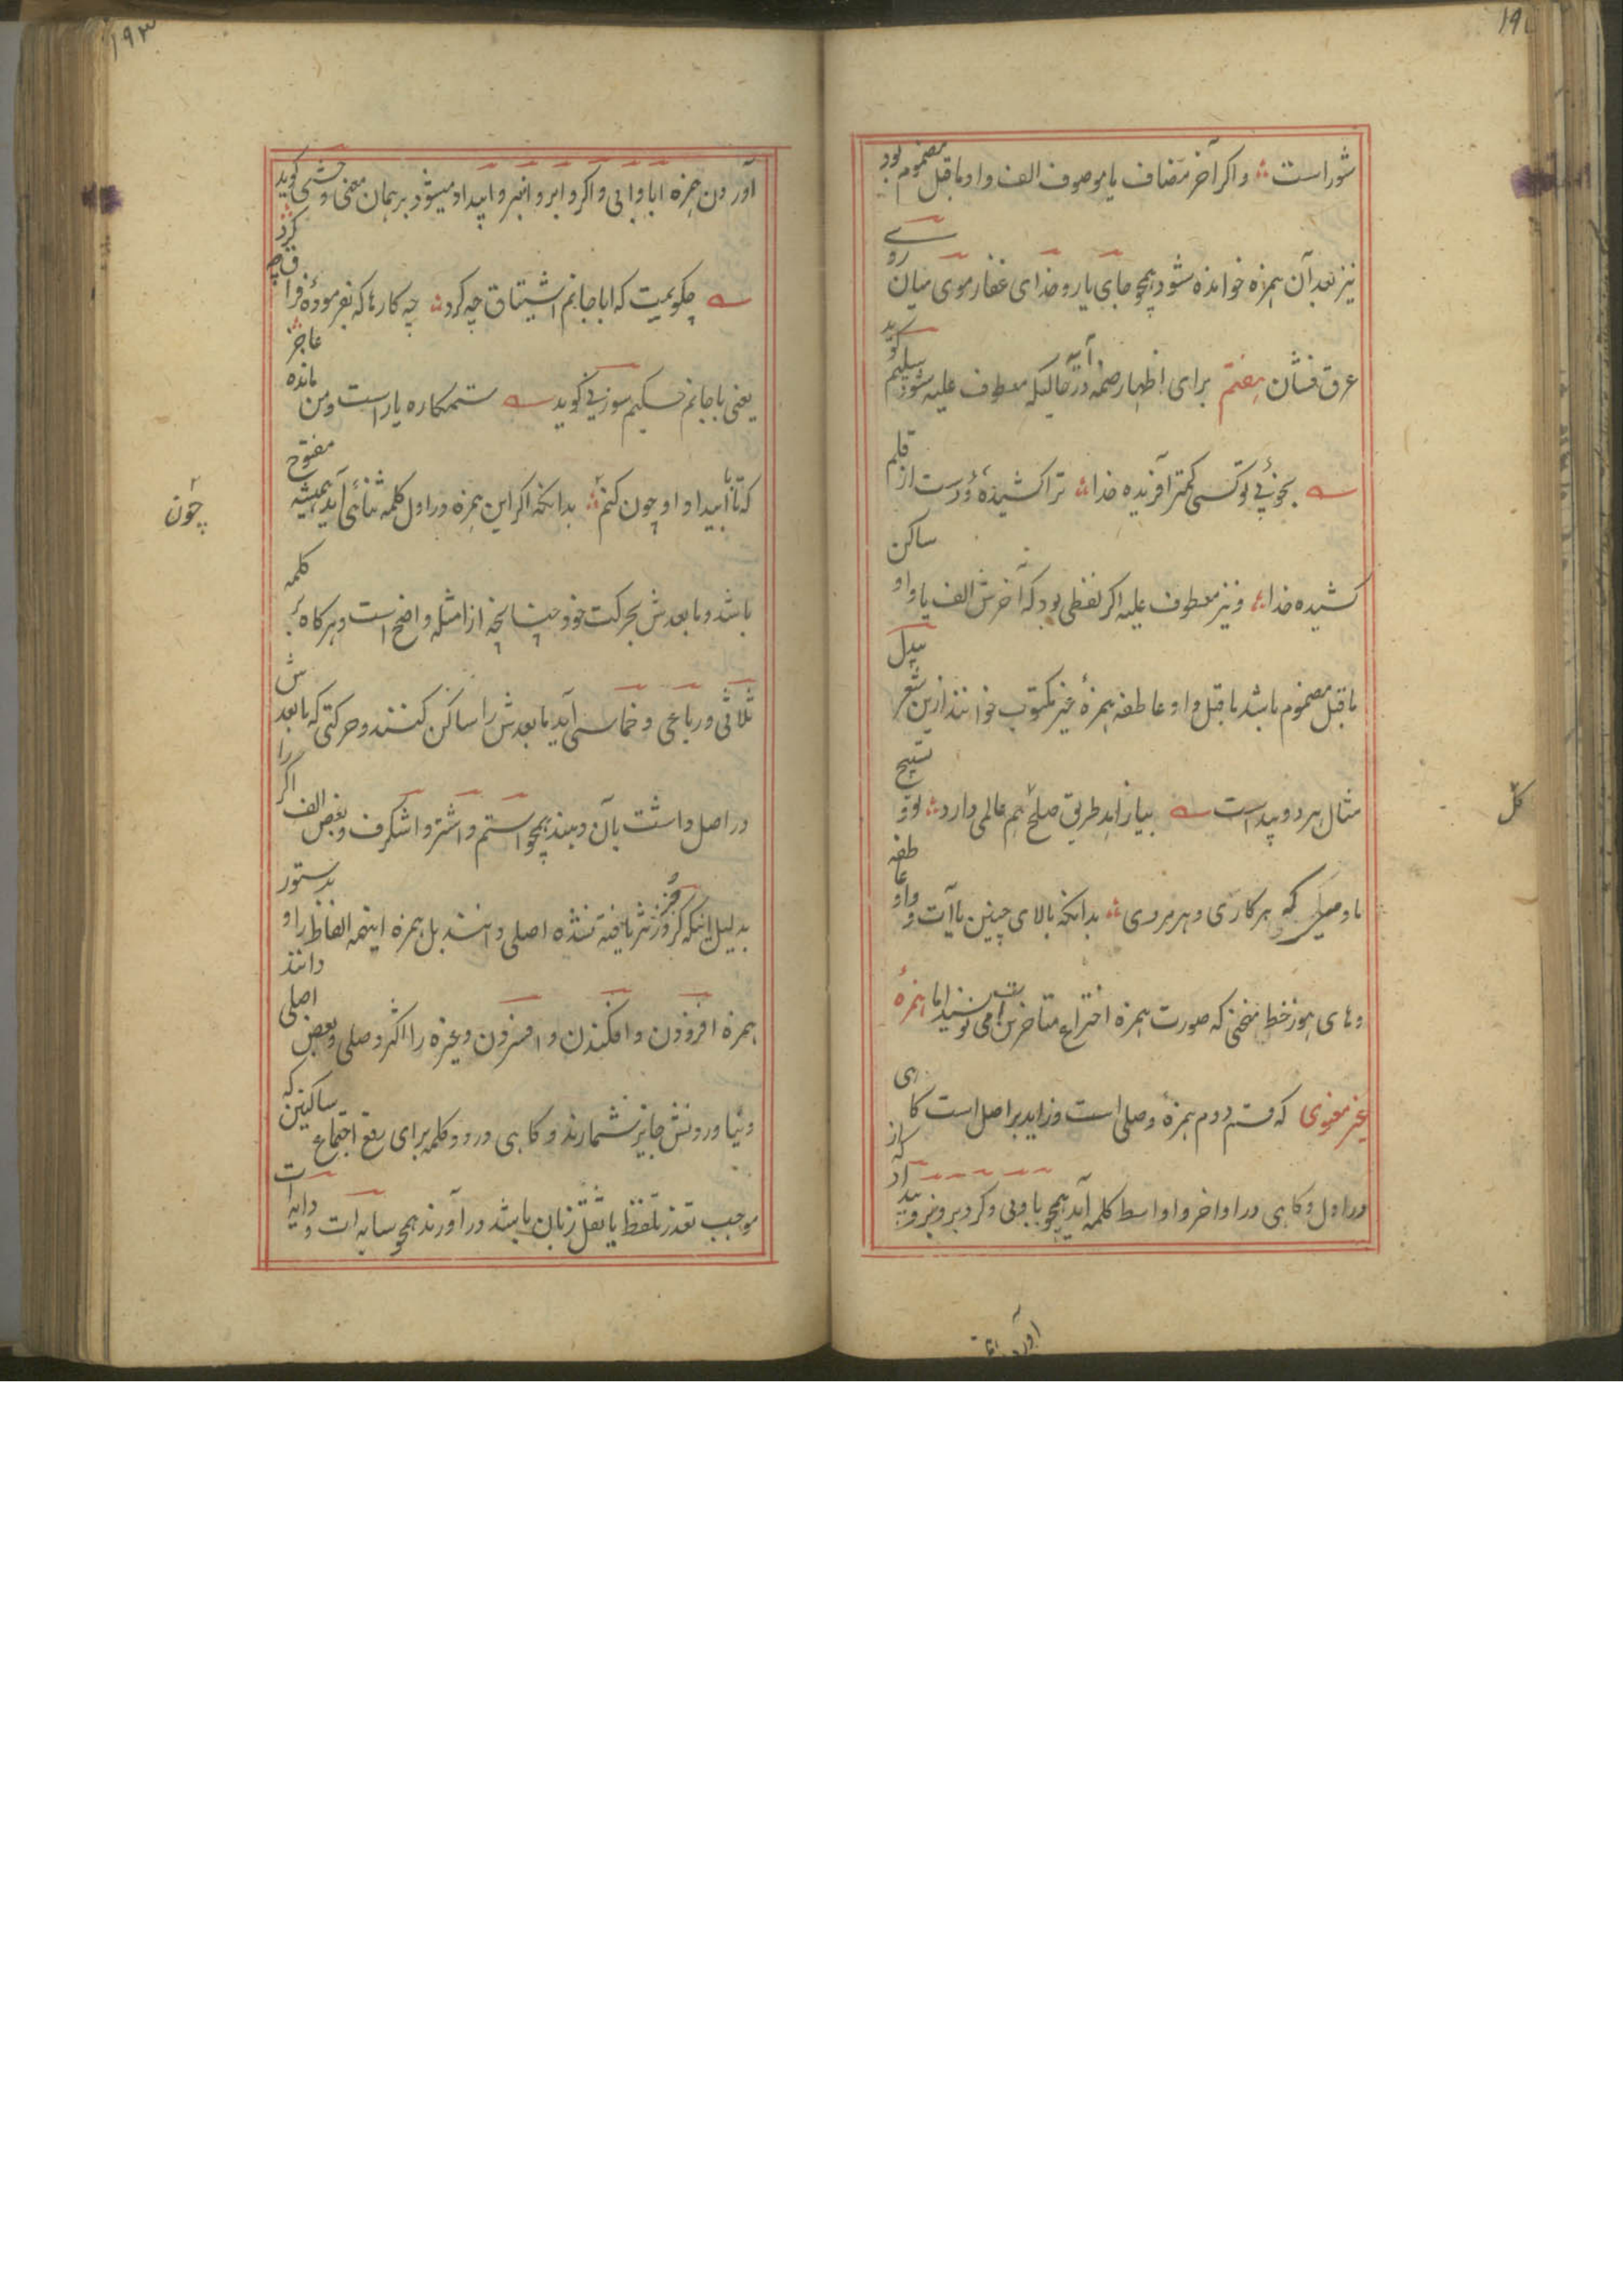 شور است و اگر آخر مضاف یا موصوف الف و او ماقبل مضموم بود
نیز بعد آن همزه خوانده شود همچو جای یار و خدای غفار موی میان روی
عرق فشان هفتم برای اظهار ضمه در حالیکه معطوف علیه شود سلیم گوید
بخوئی تو کسی کمتر آفریده خدا ترا کشیده و دست از قلم
کشیده خدا و نیز معطوف علیه اگر لفظی بود که آخرش الف یا واو ساکن
ماقبل مضموم باشد ماقبل واو عاطفه همزهٔ غیر مکتوب خوانند ازین شعر بیدل
مثال هر دو پیداست بیا زاهد طریق صلح هم عالمی دارد تو و تسبیح
ما و می کشی هر کاری و هر مردی بدانکه بالای چنین یاآت و واو عاطفه
و های هوز خط منحنی که صورت همزه اختراع متاخرین است می نویسند اما همزهٔ
غیر معنوی که قسم دوم همزهٔ وصلی است و زاید بر اصل است گاهی
در اول و گاهی در اواخر و اواسط کلمه آید همچو با و بی و گر و بر و نبر و بیداد که از
۱۹۳
آوردن همزه ابا و ابی و اگر و ابر و انبر و ابیداد میشود بر همان معنی وحشی گوید
چگویمت که ابا جانم اشتیاق چه کرد چه کارها که بفرمودهٔ فراق چه کرد
یعنی با جانم حکیم سوزنی گوید ستمکاره یار است و من مانده عاجز
که تا با ابیداد او چون کنم بدانکه اگر این همزه در اول کلمه ثنائی آید همیشه مفتوح
باشد و مابعدش بحرکت خود چنانچه از امثله واضح است و هرگاه بر کلمه
ثلاثی و رباعی و خماسی آید مابعدش را ساکن کنند و حرکتی که مابعدش
در اصل داشت بآن دهند همچو استم و اشتر و اشگرف و بعض الف اگر را
بدلیل اینکه گر در نثر یافته نشده اصلی دانند بل همزه اینهمه الفاظ را و بدستور
همزه افزودن و افکندن و افسردن و غیره را اکثر وصلی و بعض اصلی دانند
و نیاوردنش جایز نشمارند و گاهی در دو کلمه برای رفع اجتماع ساکنین که
موجب تعذر تلفظ یا ثقل زبان باشد در آورند همچو سایه ات و دایه ات
چون
کل